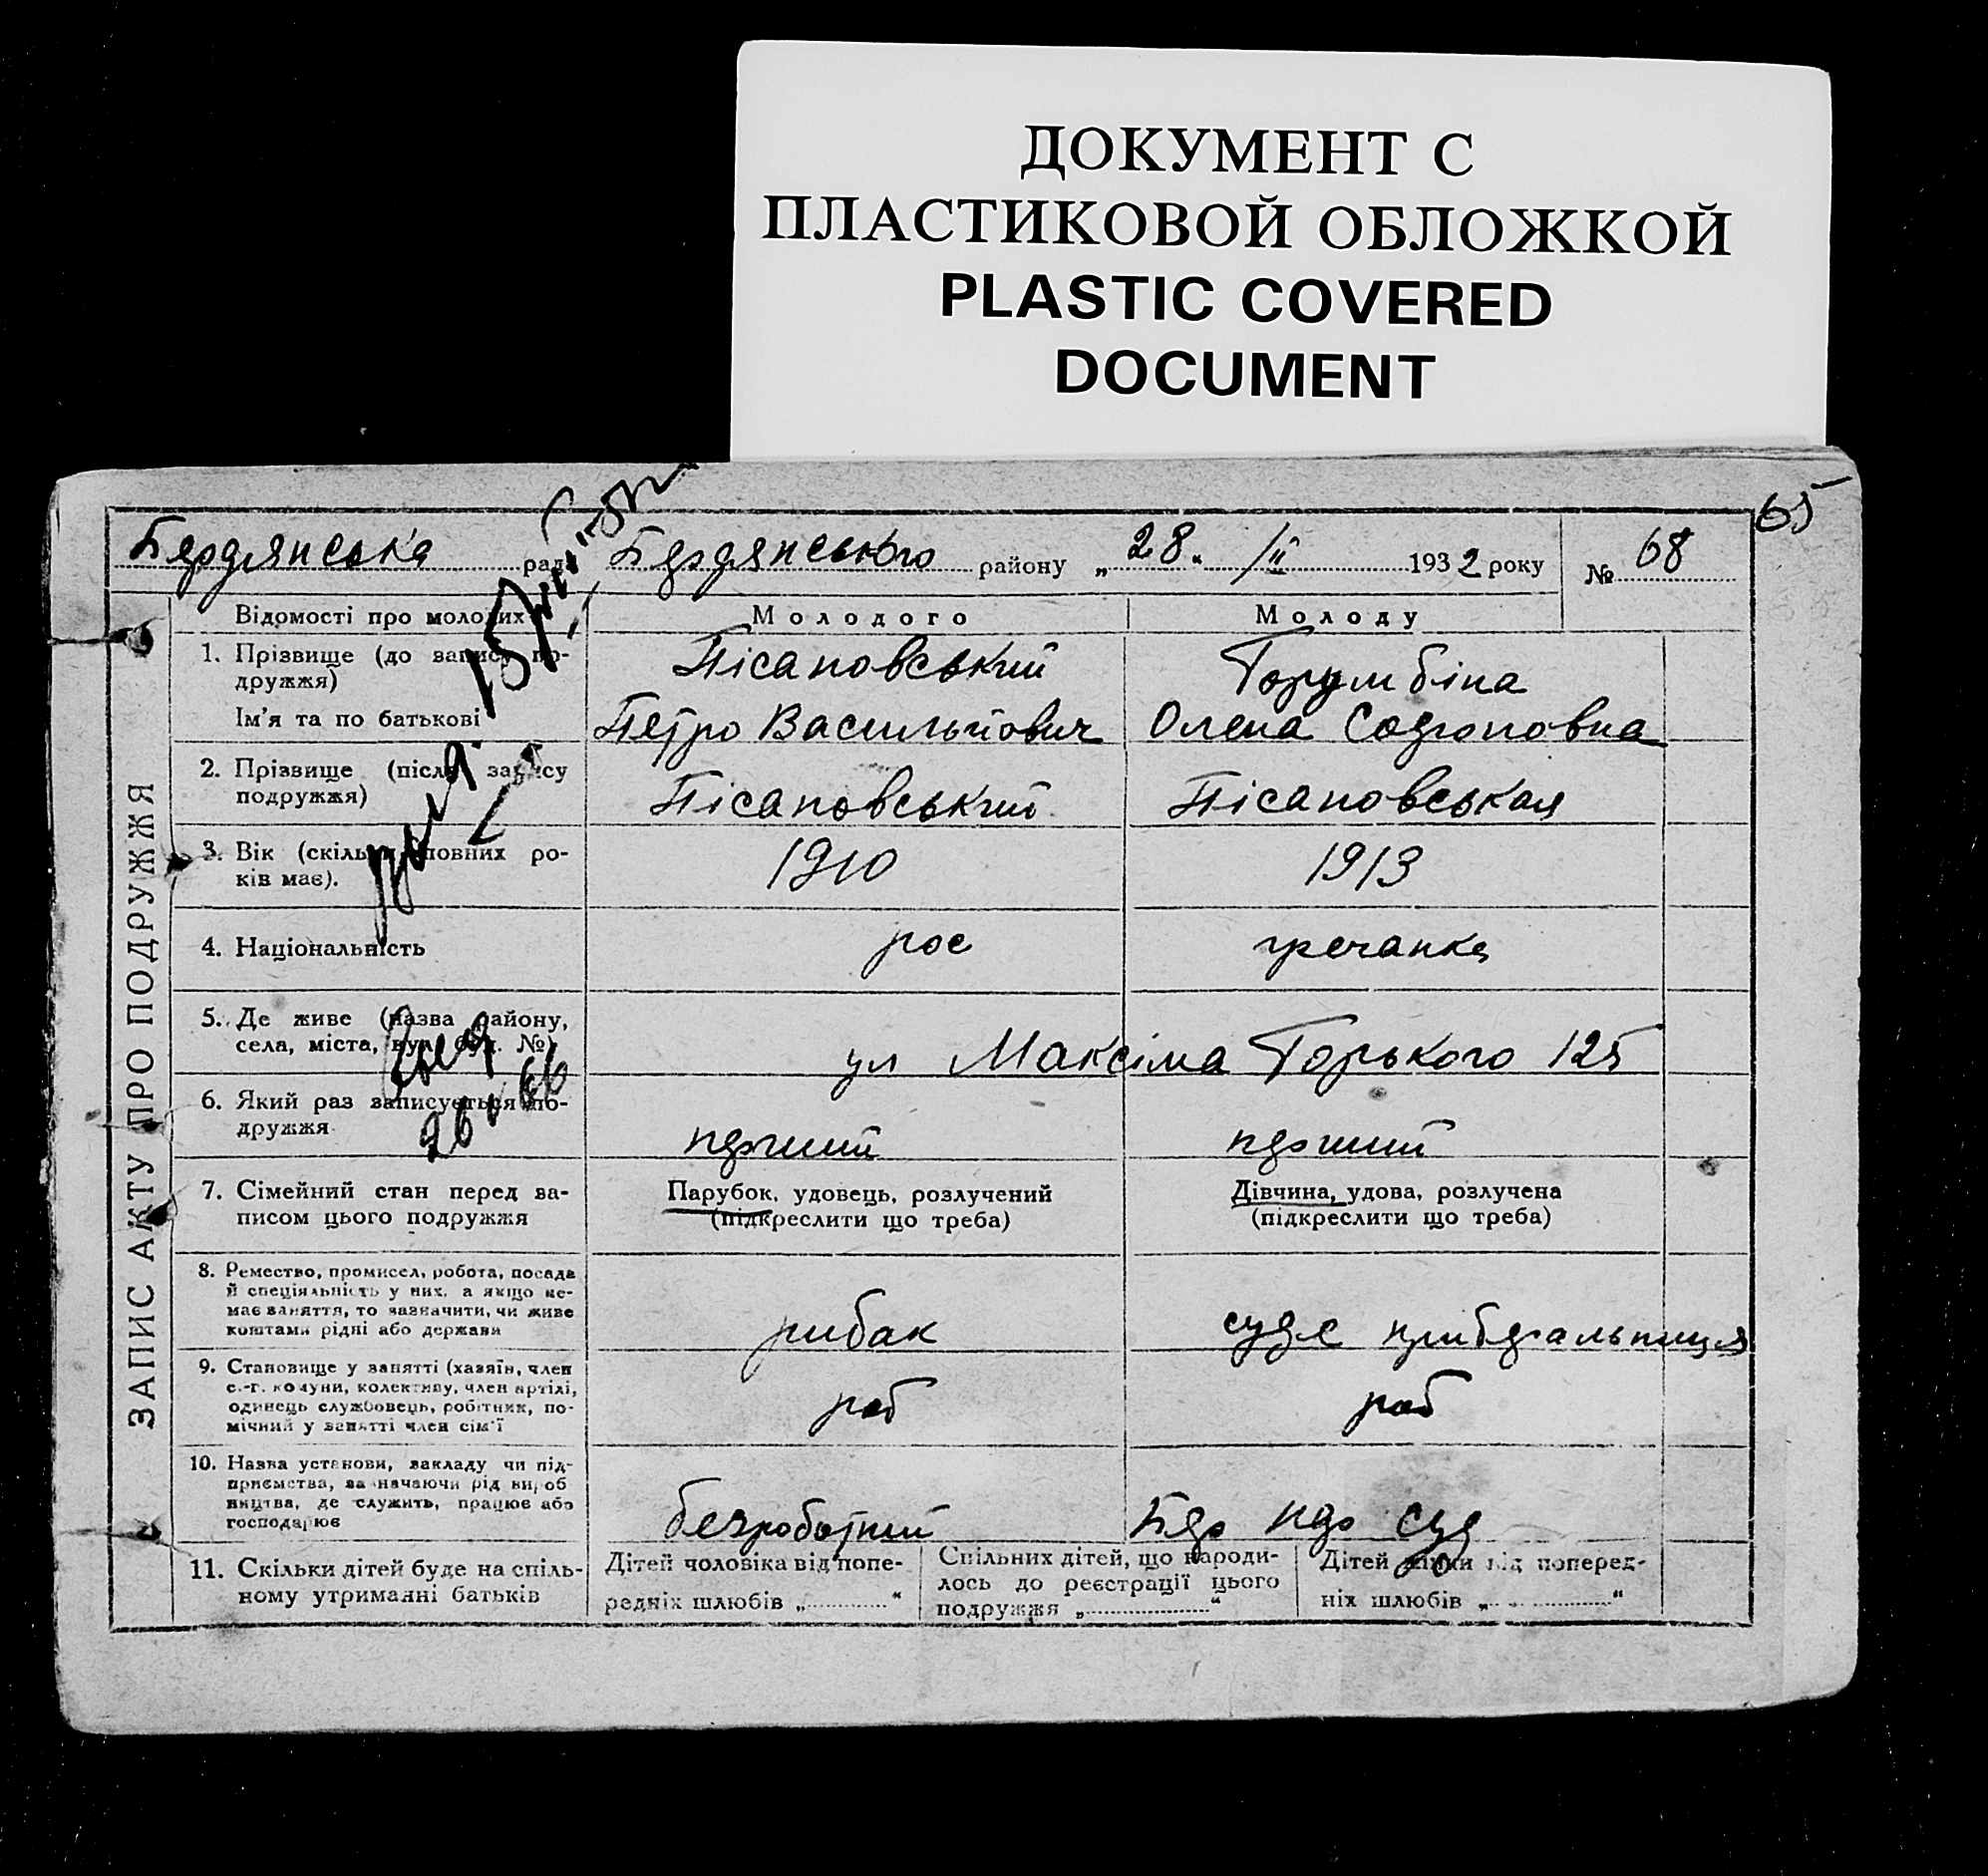 ДОКУМЕНТ С
ПЛАСТИКОВОЙ ОБЛОЖКОЙ
PLASTIC COVERED
DOCUMENT
65
Бердянська рад Бердянського району „28" /ІІ 1932 року № 68
ЗАПИС АКТУ ПРО ПОДРУЖЖЯ
Відомості про молодих Молодого Молоду
1. Прізвище (до запису по-
дружжя) Пісановський
Ім'я та по батькові Петро Васильйович Олена
2. Прізвище (після запису
подружжя) Пісановський Пісановськая
3. Вік (скільки повних ро-
ків має). 1910 1913
4. Національність рос гречанка
5. Де живе (назва району,
села, міста, вул. буд. №) ул Максіма Горького 125
6. Який раз записується по-
дружжя перший перший
26 66
7. Сімейний стан перед за-
писом цього подружжя
Парубок, удовець, розлучений
(підкреслити що треба)
Дівчина, удова, розлучена
(підкреслити що треба)
8. Ремество, промисел, робота, посада
й спеціяльність у них, а якщо не-
має заняття, то зазначити, чи живе
коштами рідні або держави
рибак прибєральниця
9. Становище у занятті (хазяїн, член
с.-г. комуни, колективу, член артілі,
одинець службовець, робітник, по-
мічний у занятті член сім'ї
роб роб
10. Назва установи, закладу чи під-
приємства, зазначаючи рід вироб
ництва, де служить, працює або
господарює
безроботний Бер нар суд
11. Скільки дітей буде на спіль-
ному утриманні батьків
Дітей чоловіка від попе-
редніх шлюбів „ "
Спільних дітей, що народи-
лось до реєстрації цього
подружжя „ "
Дітей жінки від поперед-
ніх шлюбів „ "